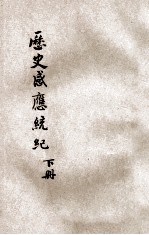 歷史感應統紀
下冊